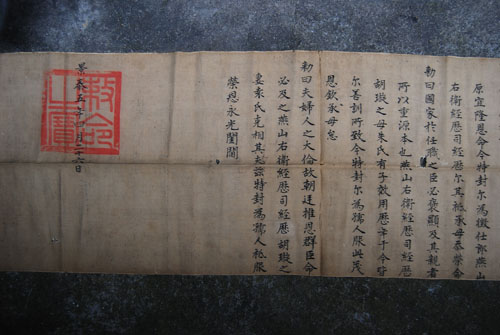 原宜隆恩命今特封尔為徵仕郎燕山
右衛經歷司經歷尔其祗承毋忝榮命
勅曰國家於任職之臣必褒顯及其親者
所以重源本也燕山右衛經歷司經歷
胡璇之母朱氏有子效用歷年于今皆
尔善訓所致今特封尔為孺人服此茂
恩欽承毋怠
勅曰夫婦人之大倫故朝廷推恩群臣命
必及之燕山右衛經歷司經歷胡璇之
妻朱氏克相其夫茲特封為孺人祗服
榮恩永光閨閫
景泰五年 月二十六日